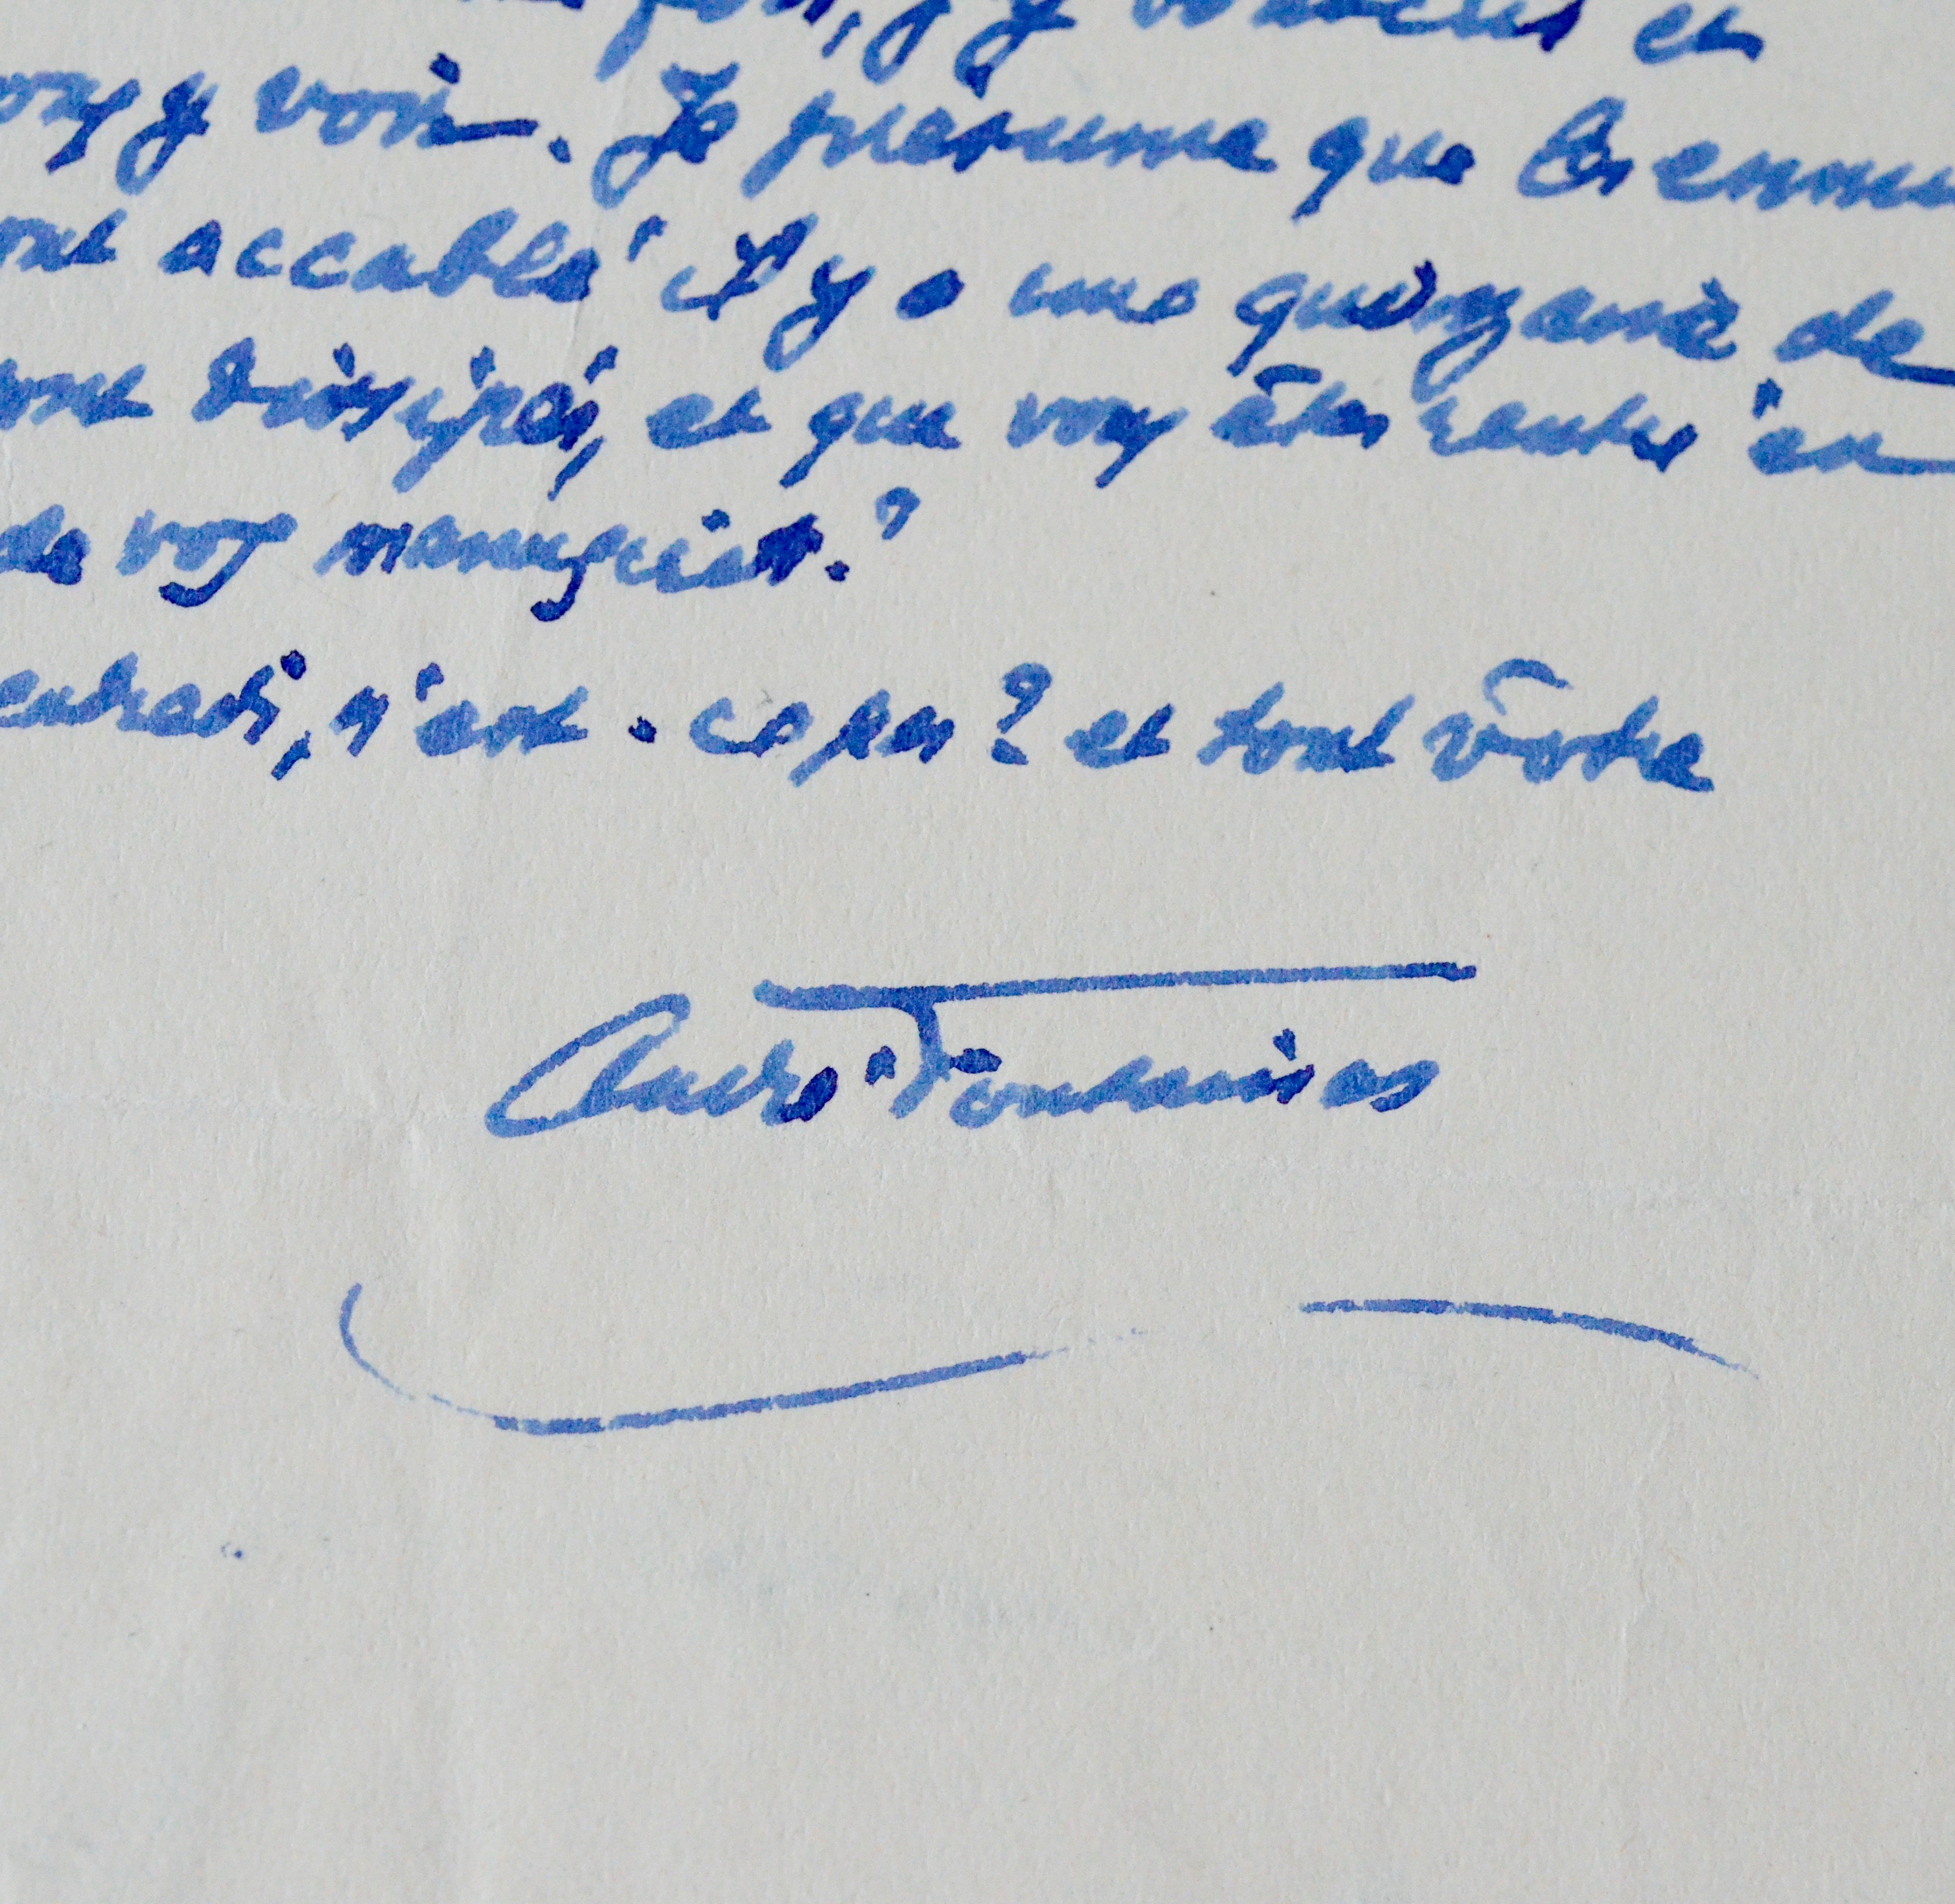 fois, j'y en
y voir. Je présume que les ennu
ont accablé il y a une quinzaine de
sont dissipés, et que vous êtes rentré en
de vos manuscrits.?
endredi, n'est-ce pas? et tout vôtre
André Fontainas